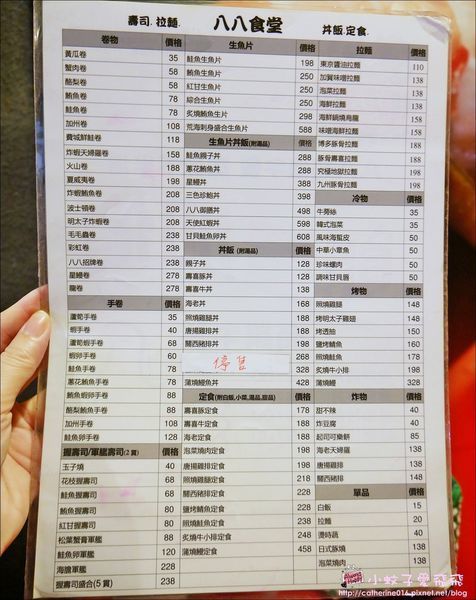 壽司.拉麵. 八八食堂 丼飯.定食.
卷物 價格
黃瓜卷 35
蟹肉卷 58
酪梨卷 58
鮪魚卷 78
鮭魚卷 78
加州卷 108
費城鮮鮭卷 118
炸蝦天婦羅卷 158
火山卷 188
夏威夷卷 198
炸蝦鮪魚卷 238
波士頓卷 208
明太子炸蝦卷 208
毛毛蟲卷 238
彩虹卷 238
八八招牌卷 238
星鰻卷 278
龍卷 278
手卷 價格
蘆筍手卷 35
蝦手卷 40
蘆筍蝦手卷 68
蝦卵手卷 60
鮭魚手卷 78
蔥花鮪魚手卷 88
酪梨鮪魚手卷 88
加州手卷 108
鮭魚卵手卷 128
握壽司/軍艦壽司(2貫) 價格
玉子燒 40
花枝握壽司 68
鮭魚握壽司 68
鮪魚握壽司 80
紅甘握壽司 80
松葉蟹膏軍艦 88
鮭魚卵軍艦 120
海膽軍艦
握壽司盛合(5貫) 238
生魚片 價格
鮭魚生魚片 198
鮪魚生魚片 250
紅甘生魚片 250
綜合生魚片 250
炙燒鮪魚生片 250
荒海刺身盛合生魚片 588
生魚片丼飯(附湯品) 價格
鮭魚親子丼 288
蔥花鮪魚丼 288
星鰻丼 288
三色珍鮑丼 398
八八御膳丼 498
天使紅蝦丼 598
甘貝鮭魚卵丼 608
丼飯(附湯品) 價格
親子丼 128
壽喜豚丼 128
壽喜牛丼 128
海老丼 168
照燒雞腿丼 168
唐揚雞排丼 168
關西豬排丼 168
停售
蒲燒鰻魚丼 428
定食(附白飯,小菜,湯品,甜品) 價格
壽喜豚定食 178
壽喜牛定食 178
海老定食 188
泡菜燒肉定食 198
唐揚雞排定食 228
關西豬排定食 228
鹽烤鯖魚定食 228
照燒鮭魚定食 228
炙燒牛小排定食 228
蒲燒鰻定食 458
拉麵 價格
東京醬油拉麵 110
加賀味噌拉麵 138
泡菜拉麵 138
海鮮拉麵 138
海鮮鍋燒烏龍 158
味噌海鮮拉麵 158
博多豚骨拉麵 188
豚骨壽喜拉麵 188
究極地獄拉麵 188
九州豚骨拉麵 198
冷物 價格
牛蒡絲 35
韓式泡菜 35
風味海蜇皮 50
中華小章魚 50
珍味螺肉 50
調味甘貝唇 50
烤物 價格
照燒雞腿 148
烤明太子雞翅 148
烤透抽 150
鹽烤鯖魚 160
照燒鮭魚 178
炙燒牛小排 178
蒲燒鰻 328
炸物 價格
甜不辣 40
炸豆腐 40
起司可樂餅 85
海老天婦羅 138
唐揚雞排 138
關西豬排 148
單品 價格
白飯 15
拉麵 20
燙時蔬 40
日式豚燒 138
泡菜燒肉 138
小蚊子愛飛飛
http://catherine014.pixnet.net/blog